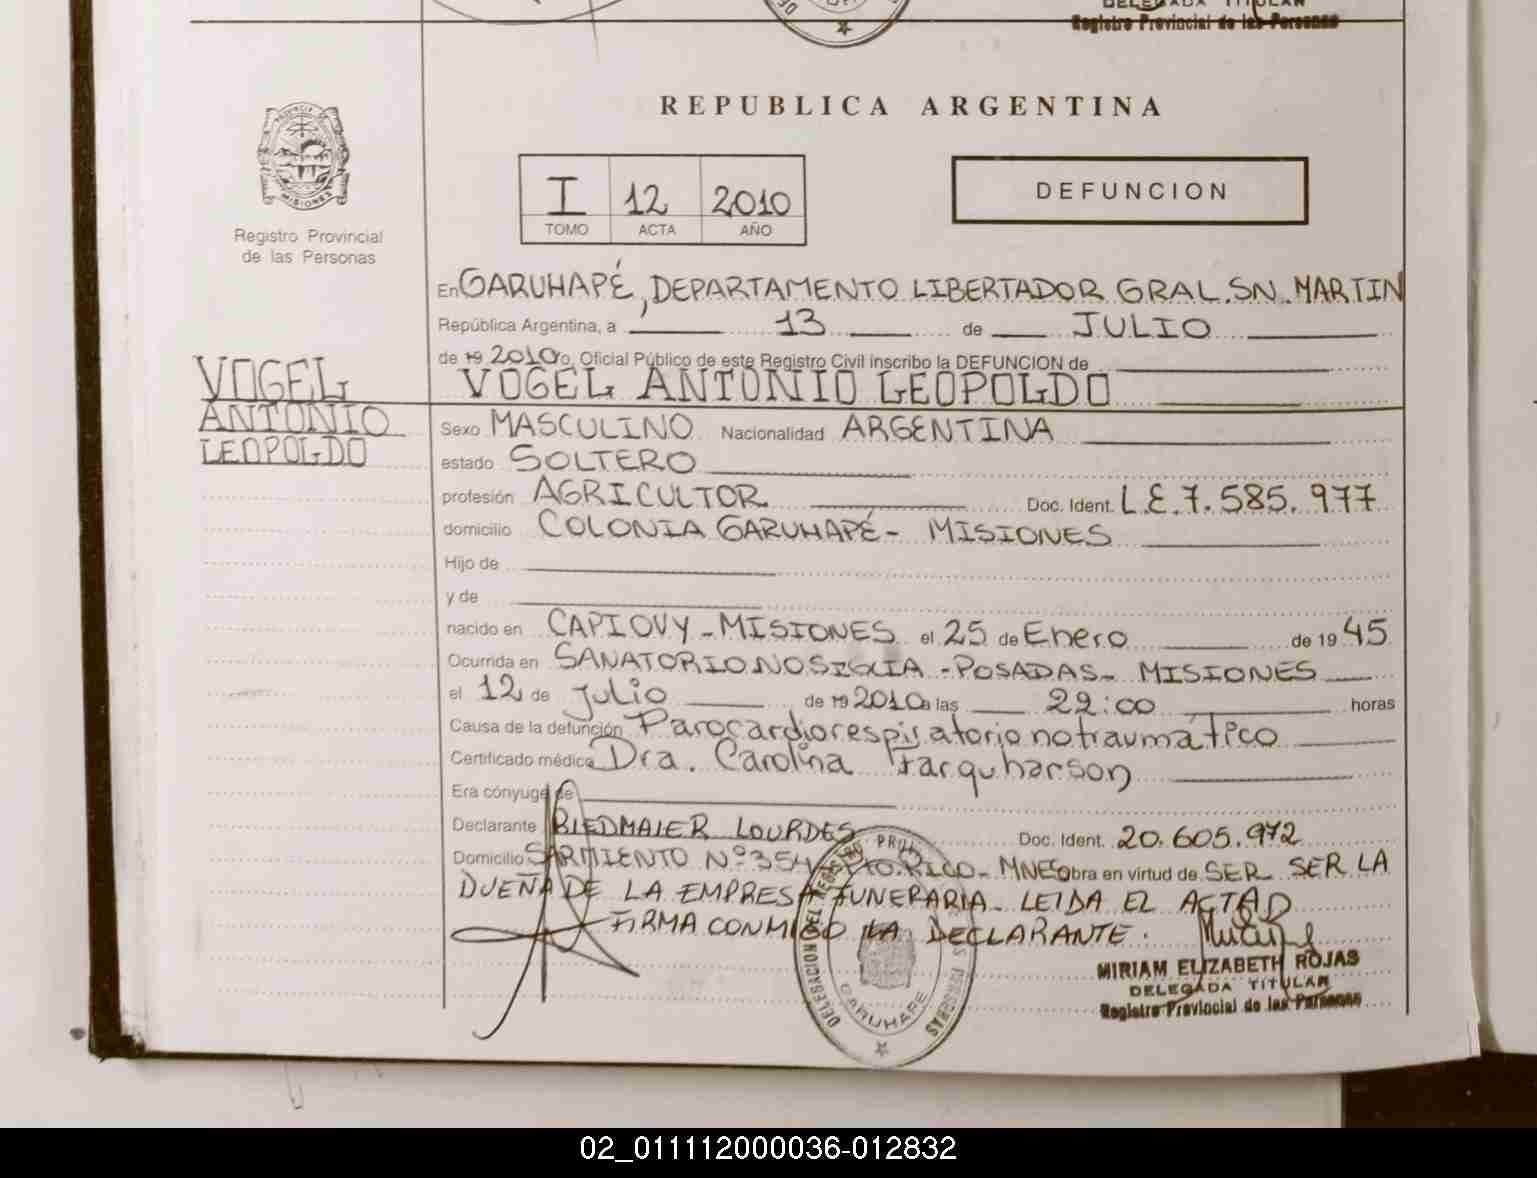 DELEGADA TITULAR
Registro Provincial de las Personas
PROVINCIA DE
MISIONES
Registro Provincial
de las Personas
REPUBLICA ARGENTINA
I 12 2010
TOMO ACTA AÑO
DEFUNCION
En GARUHAPÉ, DEPARTAMENTO LIBERTADOR GRAL. SN. MARTIN
República Argentina, a 13 de JULIO
de 19 2010 yo, Oficial Público de este Registro Civil inscribo la DEFUNCION de
VOGEL ANTONIO LEOPOLDO
VOGEL
ANTONIO
LEOPOLDO
Sexo MASCULINO Nacionalidad ARGENTINA
estado SOLTERO
profesión AGRICULTOR Doc. Ident. L.E.7.585.977
domicilio COLONIA GARUHAPÉ - MISIONES
Hijo de
y de
nacido en CAPIOVY - MISIONES el 25 de Enero de 19 45
Ocurrida en SANATORIO NOSIGLIA - POSADAS - MISIONES
el 12 de Julio de 19 2010 a las 22:00 horas
Causa de la defunción Parocardiorespiratorio no traumático
Certificado médico Dra. Carolina Farquharson
Era cónyuge de
Declarante BIEDMAIER LOURDES Doc. Ident. 20.605.972
Domicilio SARMIENTO Nº 354 PTO. RICO - MNES Obra en virtud de SER SER LA
DUEÑA DE LA EMPRESA FUNERARIA - LEIDA EL ACTA
FIRMA CONMIGO LA DECLARANTE.
MIRIAM ELIZABETH ROJAS
DELEGADA TITULAR
Registro Provincial de las Personas
DELEGACION
GARUHAPE
02_011112000036-012832